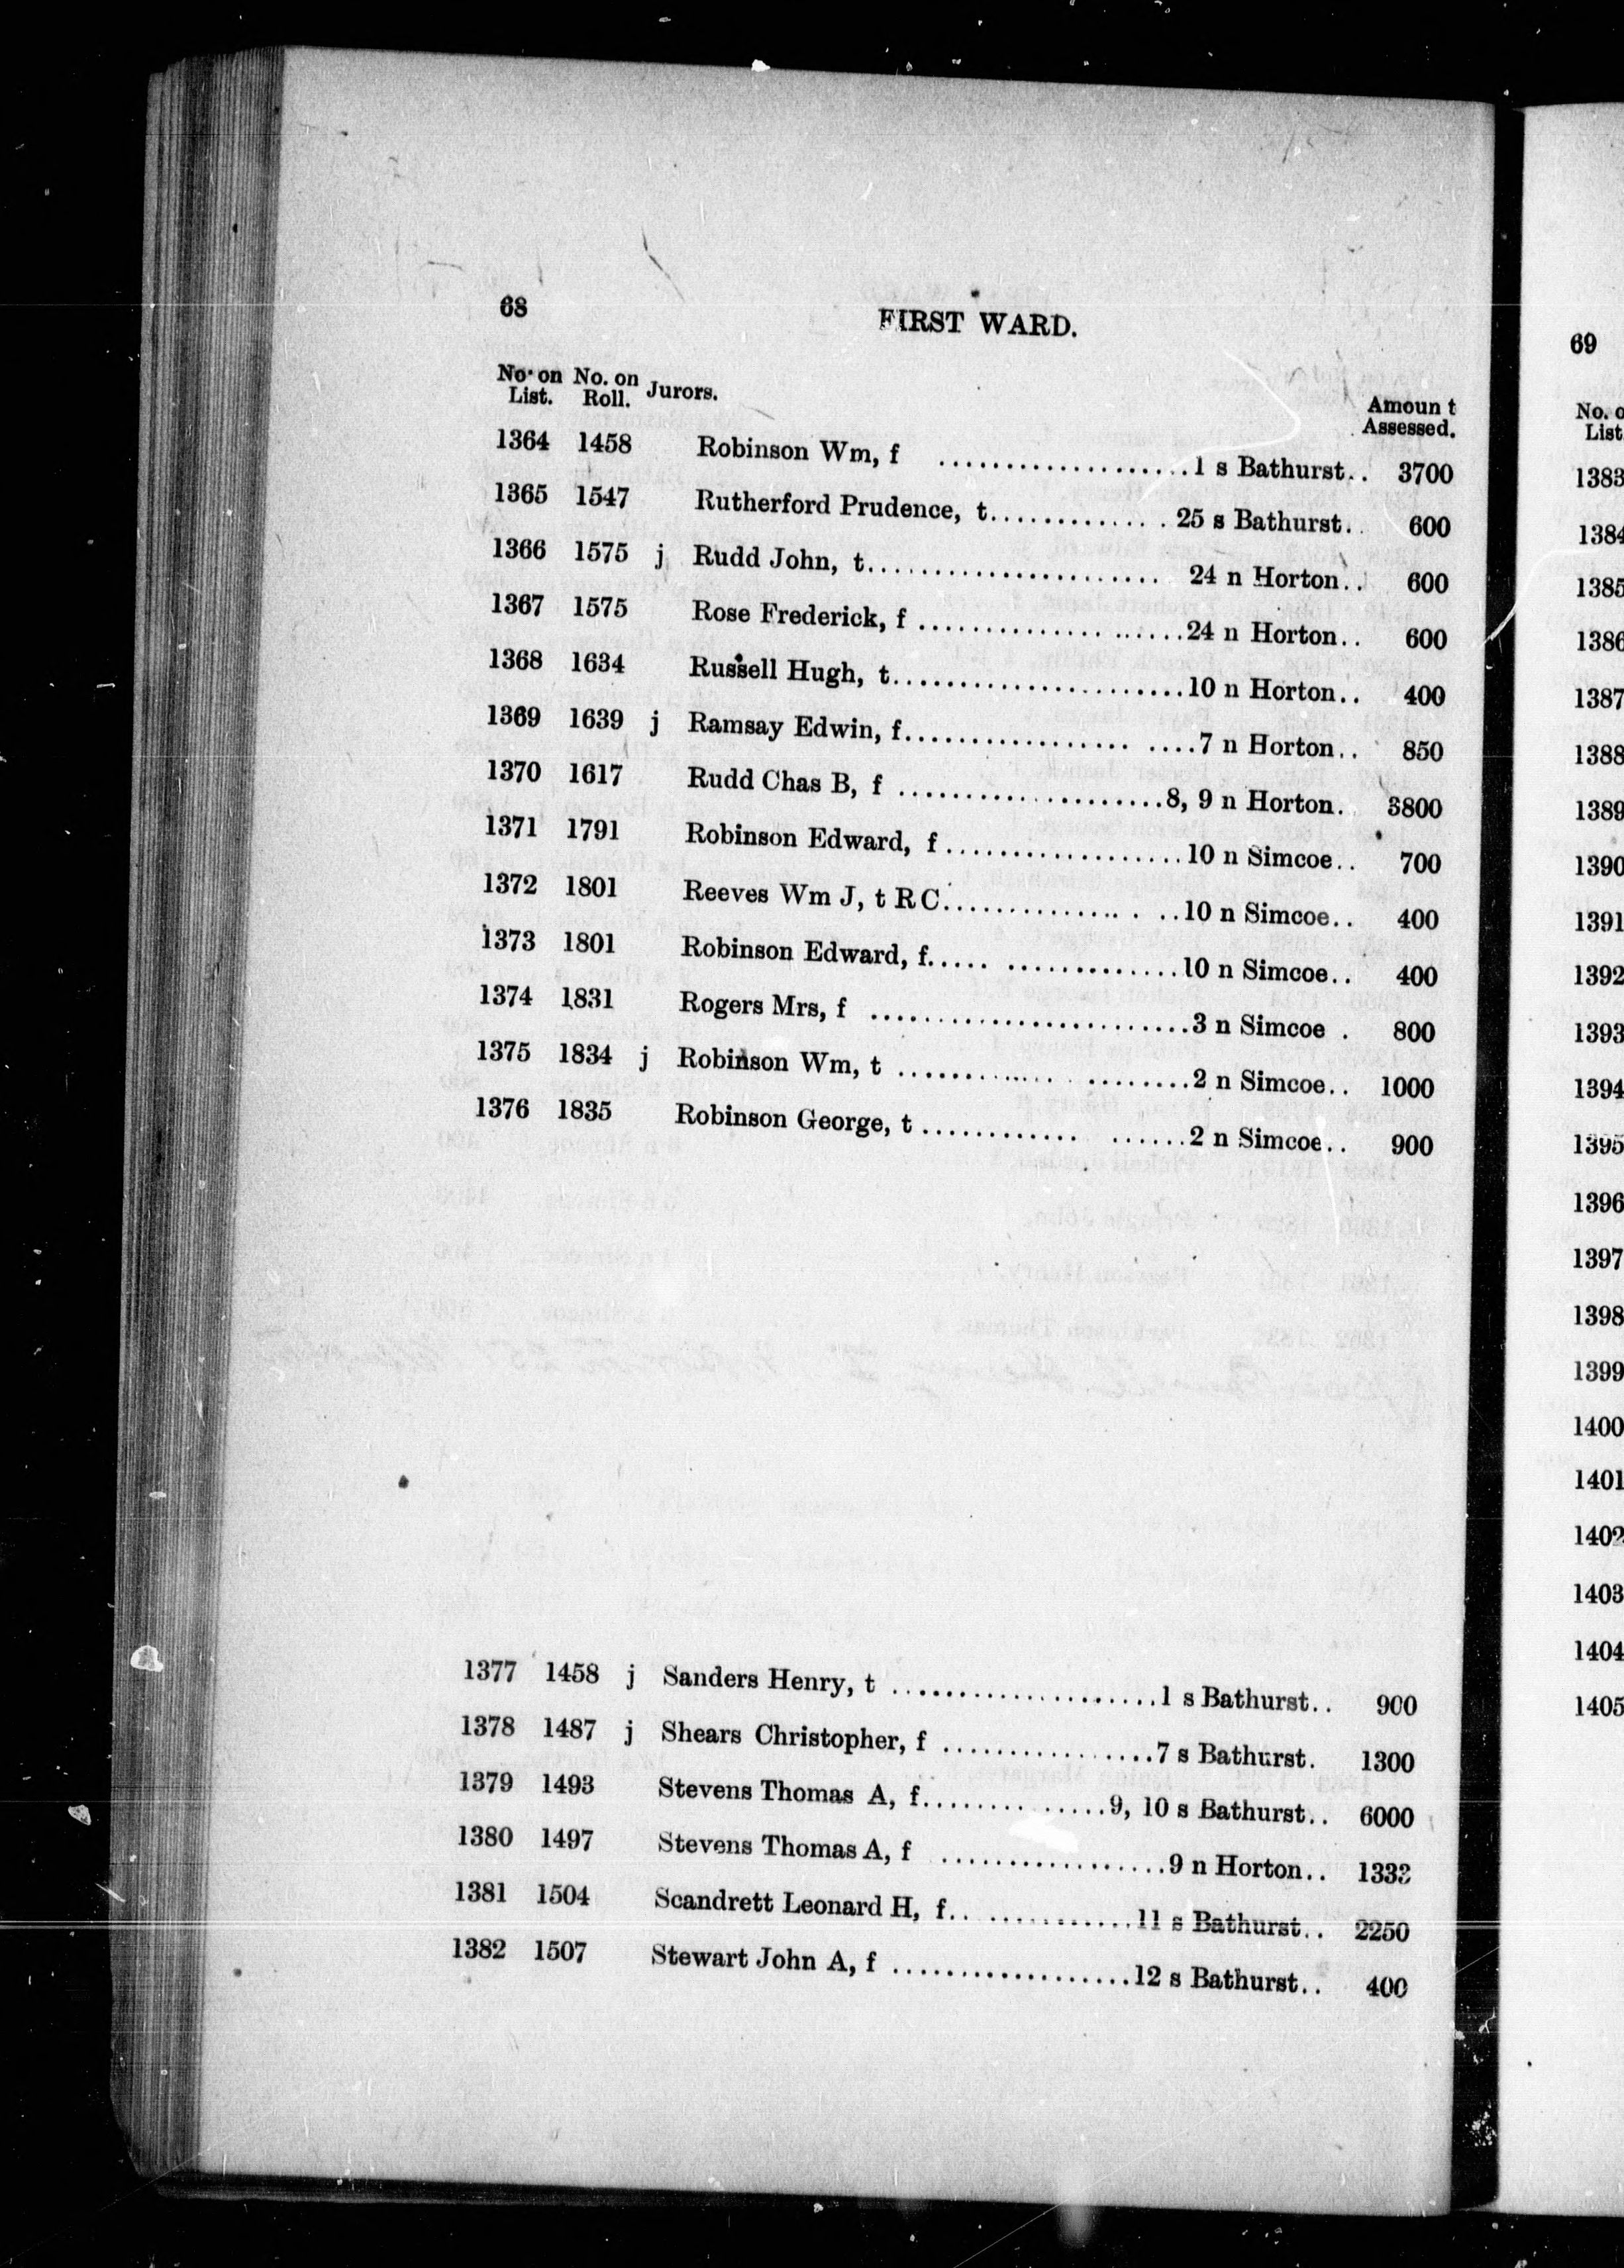 68
FIRST WARD.
No. on List. No. on Roll. Jurors. Amount Assessed.
1364 1458 Robinson Wm, f ...................1 s Bathurst.. 3700
1365 1547 Rutherford Prudence, t............. 25 s Bathurst.. 600
1366 1575 j Rudd John, t...................... 24 n Horton.. 600
1367 1575 Rose Frederick, f .............. ......24 n Horton.. 600
1368 1634 Russell Hugh, t......................10 n Horton.. 400
1369 1639 j Ramsay Edwin, f................. ....7 n Horton.. 850
1370 1617 Rudd Chas B, f ....................8, 9 n Horton. 3800
1371 1791 Robinson Edward, f..................10 n Simcoe.. 700
1372 1801 Reeves Wm J, t R C............... . ..10 n Simcoe.. 400
1373 1801 Robinson Edward, f..... .............10 n Simcoe.. 400
1374 1831 Rogers Mrs, f ........................3 n Simcoe . 800
1375 1834 j Robinson Wm, t ............ ........2 n Simcoe.. 1000
1376 1835 Robinson George, t ............ ......2 n Simcoe.. 900
1377 1458 j Sanders Henry, t ....................1 s Bathurst.. 900
1378 1487 j Shears Christopher, f ................7 s Bathurst. 1300
1379 1493 Stevens Thomas A, f..............9, 10 s Bathurst.. 6000
1380 1497 Stevens Thomas A, f .................9 n Horton.. 1333
1381 1504 Scandrett Leonard H, f.. ...........11 s Bathurst.. 2250
1382 1507 Stewart John A, f ..................12 s Bathurst.. 400
69
No. o
List
1383
1384
1385
1386
1387
1388
1389
1390
1391
1392
1393
1394
1395
1396
1397
1398
1399
1400
1401
1402
1403
1404
1405